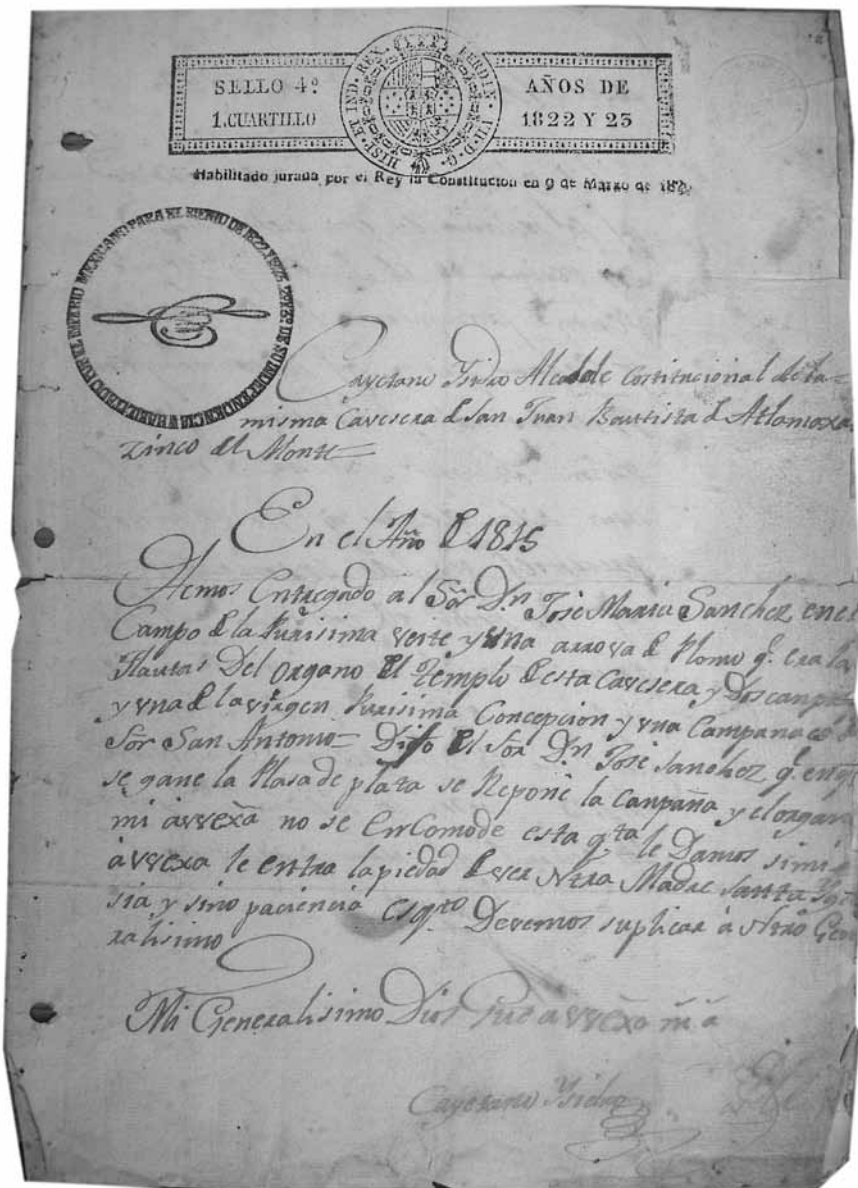 SELLO 4º
1.CUARTILLO
HISP. ET IND. REX. FERDIN. VII. D. G.
AÑOS DE
1822 Y 23
Habilitado jurada por el Rey la Constitucion en 9 de Marzo de
HABILITADO POR EL IMPERIO MEXICANO PARA EL BIENIO DE 1822 Y 1823. 2º Y 3º DE SU INDEPENDENCIA
Cayetano Ysidro Alcalde Costitucional de la
misma Cavesera d San Juan Bautista d Atlamaxa
zinco del Monte
En el Año d 1815
Hemos Entregado al Sõr Dn José Maria Sanchez en el
Campo d la Purisima veite y una arrova d Plomo q. era la
Flautas Del organo del Templo d esta Cavesera y Dos canpa
y vna d la virgen Purisima Concepcion y vna Campana
Sõr San Antonio Dijo el Sõr Dn José Sanchez q. en
se gane la Plasa de plaza se Repone la Canpaña y el organ
mi a vvexã no se Encomode esta q.ta le Damos simi
a vvexa le entra la piedad d ver Ntra Madre Santa Ygle
sia y sino paciencia es q.to Devemos suplicar à Ntro Gene
ralisimo
Mi Generalisimo Dios Gue a vvexa m a
Cayetano Ysidro